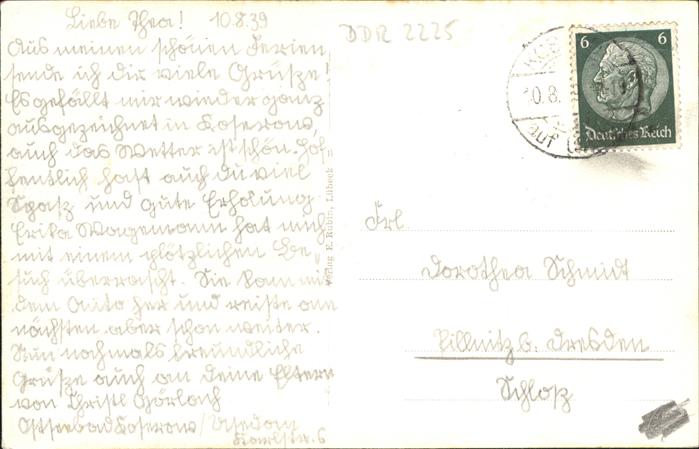 Liebe Thea! 10.8.39
Aus meinen schönen Ferien
sende ich dir viele Grüsze!
Es gefällt mir wieder ganz
ausgezeichnet in Koserow,
auch das Wetter ist schön. Hof=
fentlich hast auch du viel
Spasz und gute Erholung.
Erika Wagemann hat mich
mit einem plötzlichen Be=
such überrascht. Sie kam mit
dem Auto her und reiste am
nächsten aber schon weiter.
Nun nochmals freundliche
Grüsze auch an deine Eltern
von Christl Görlach
Ostseebad Koserow/Usedom
Karlstr. 6
Verlag E. Rubin, Lübeck
DDR 2225
6 6
Deutsches Reich
auf
Frl.
Dorothea Schmidt
Pillnitz b. Dresden
Schloß